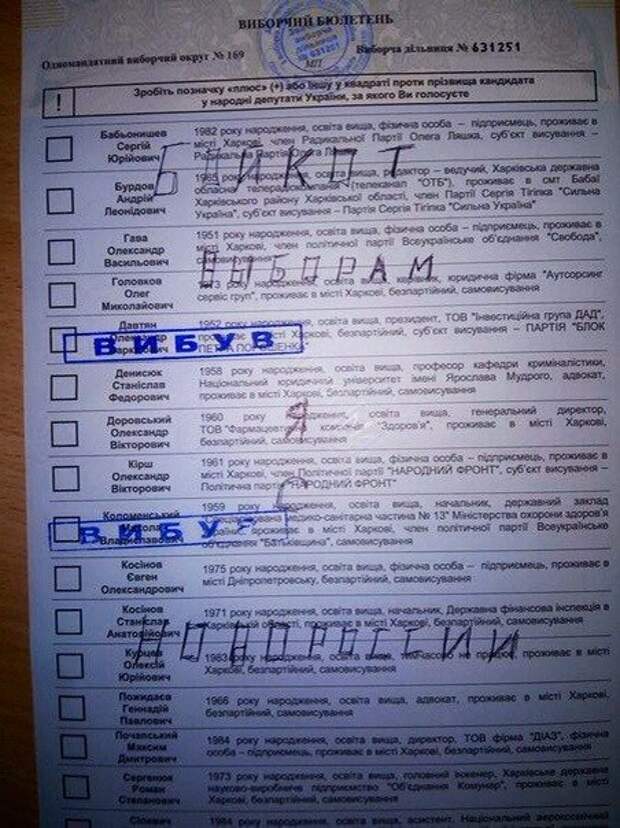 ВИБОРЧИЙ БЮЛЕТЕНЬ
Одномандатний виборчий округ № 169
Виборча дільниця № 631251
МП
! Зробіть позначку «плюс» (+) або іншу у квадраті проти прізвища кандидата
у народні депутати України, за якого Ви голосуєте
Бабьонишев
Сергій
Юрійович
1982 року народження, освіта вища, фізична особа – підприємець, проживає в
місті Харкові, член Радикальної Партії Олега Ляшка, суб'єкт висування –
Радикальна Партія Олега
БЙКОТ
Бурдов
Андрій
Леонідович
1965 року народження, освіта вища, редактор – ведучий, Харківська державна
обласна телерадіокомпанія (телеканал "ОТБ"), проживає в смт Бабаї
Харківського району Харківської області, член Партії Сергія Тігіпка "Сильна
Україна", суб'єкт висування – Партія Сергія Тігіпка "Сильна Україна"
Гава
Олександр
Васильович
1951 року народження, освіта вища, фізична особа – підприємець, проживає в
місті Харкові, член політичної партії Всеукраїнське об'єднання "Свобода",
ВЫБОРАМ
Головков
Олег
Миколайович
року народження, освіта вища, керівник, юридична фірма "Аутсорсинг
сервіс груп", проживає в місті Харкові, безпартійний, самовисування
Давтян
1952 року народження, освіта вища, президент, ТОВ "Інвестиційна група ДАД",
місті Харкові, безпартійний, суб'єкт висування – ПАРТІЯ "БЛОК
ПЕТРА ПОРОШЕНКА"
ВИБУВ
Денисюк
Станіслав
Федорович
1958 року народження, освіта вища, професор кафедри криміналістики,
Національний юридичний університет імені Ярослава Мудрого, адвокат,
проживає в місті Харкові, безпартійний, самовисування
Доровський
Олександр
Вікторович
1960 року народження, освіта вища, генеральний директор,
ТОВ "Фармацевтична компанія "Здоров'я", проживає в місті Харкові,
безпартійний, самовисування
Я
Кірш
Олександр
Вікторович
1961 року народження, освіта вища, фізична особа – підприємець, проживає в
місті Харкові, член Політичної партії "НАРОДНИЙ ФРОНТ", суб'єкт висування –
Політична партія "НАРОДНИЙ ФРОНТ"
С
Коломенський
Микола
Владиславович
1959 року народження, освіта вища, начальник, державний заклад
медико-санітарна частина № 13" Міністерства охорони здоров'я
України, проживає в місті Харкові, член політичної партії Всеукраїнське
об'єднання "Батьківщина", самовисування
ВИБУВ
Косінов
Євген
Олександрович
1975 року народження, освіта вища, фізична особа – підприємець, проживає в
місті Дніпропетровську, безпартійний, самовисування
Косінов
Станіслав
Анатолійович
1971 року народження, освіта вища, начальник, Державна фінансова інспекція в
Харківській області, проживає в місті Харкові, безпартійний, самовисування
НОВОРОССИИ
Курцев
Олексій
Юрійович
1983 року народження, освіта вища, тимчасово не працює, проживає в місті
Харкові, безпартійний, самовисування
Пожидаєв
Геннадій
Павлович
1966 року народження, освіта вища, адвокат, проживає в місті Харкові,
безпартійний, самовисування
Почапський
Максим
Дмитрович
1984 року народження, освіта вища, директор, ТОВ фірма "ДІАЗ", фізична
особа – підприємець, проживає в місті Харкові, безпартійний, самовисування
Сергенюк
Роман
Степанович
1973 року народження, освіта вища, головний інженер, Харківське державне
науково-виробниче підприємство "Об'єднання Комунар", проживає в місті
Харкові, безпартійний, самовисування
року народження, освіта вища, асистент, Національний аерокосмічний